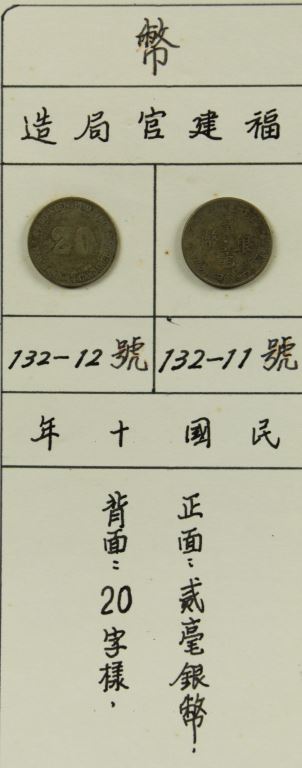 幣
福建官局造
20
132-11號
132-12號
民國十年
正面:貳毫銀幣.
背面:20字樣,